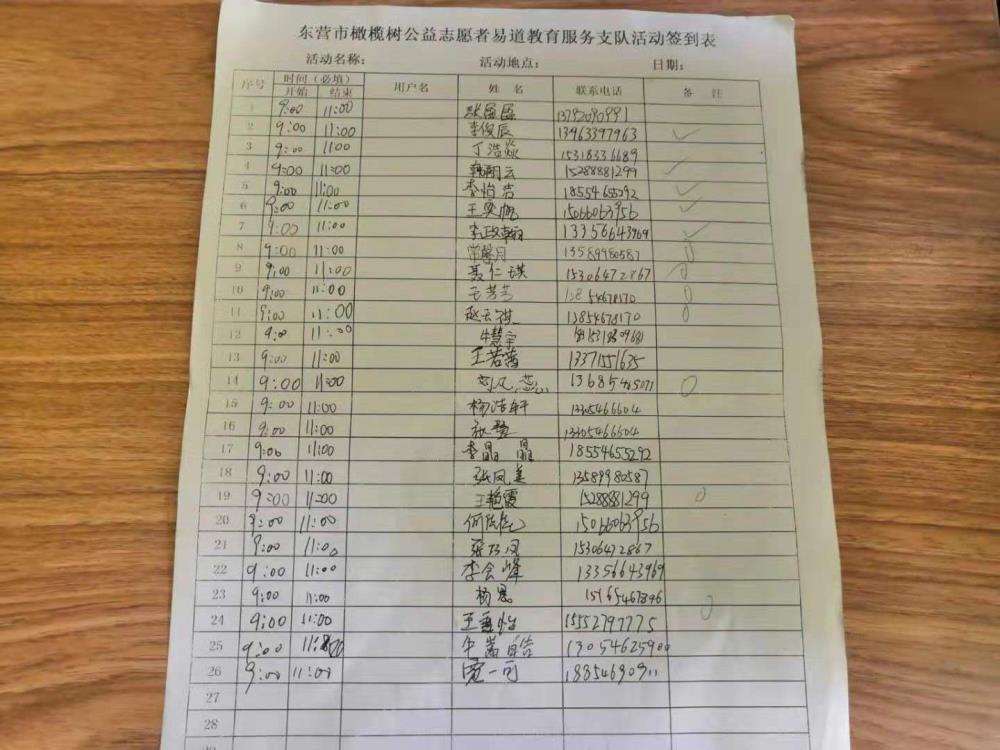 东营市橄榄树公益志愿者易道教育服务支队活动签到表
活动名称: 活动地点: 日期:
序号 时间（必填） 用户名 姓名 联系电话 备注
开始 结束
1 9:00 11:00
2 9:00 11:00 李俊辰 13963397963
3 9:00 11:00 丁浩焱 15318336689
4 9:00 11:00 15288881299
5 9:00 11:00 李怡洁 18554655292
6 9:00 11:00 王奕帆 15066063956
7 9:00 11:00 李政翰 13356643969
8 9:00 11:00 常馨月 13589980587
9 9:00 11:00 聂仁琪 15306472867
10 9:00 11:00 王芳芳
11 9:00 11:00 赵云祺 13854678170
12 9:00 11:00 牛慧宇
13 9:00 11:00 王若茜 13371551635
14 9:00 11:00 13685465071
15 9:00 11:00 杨浩轩 13305466604
16 9:00 11:00 13305466604
17 9:00 11:00 李晶晶 18554655292
18 9:00 11:00 张凤美 13589980587
19 9:00 11:00 王艳霞 15288881299
20 9:00 11:00 15066063956
21 9:00 11:00 15306472867
22 9:00 11:00 李会峰 13356643969
23 9:00 11:00 杨恩
24 9:00 11:00 15552797775
25 9:00 13054625900
26 9:00 11:00
27
28